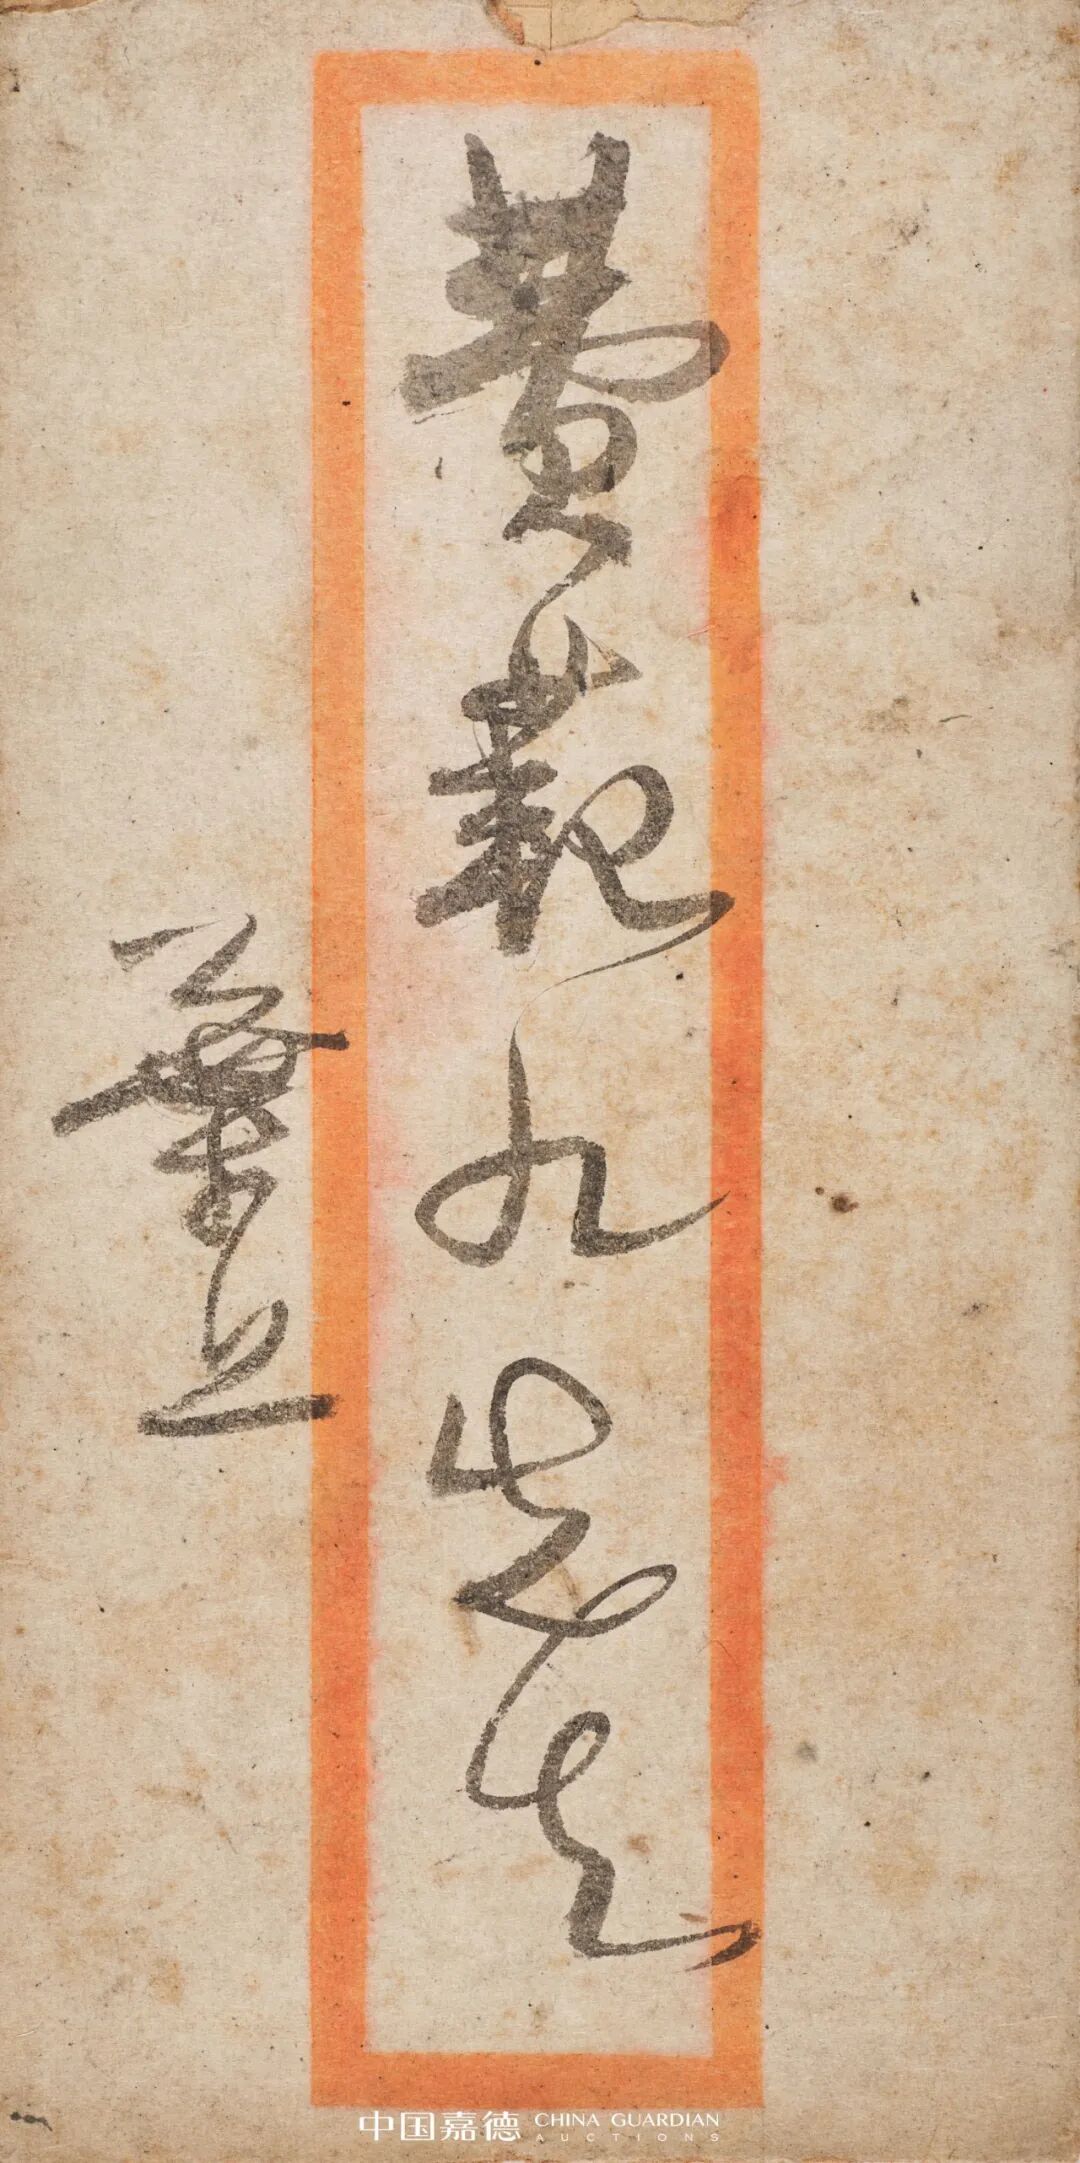 费范九先生
叶上
中国嘉德 CHINA GUARDIAN
AUCTIONS